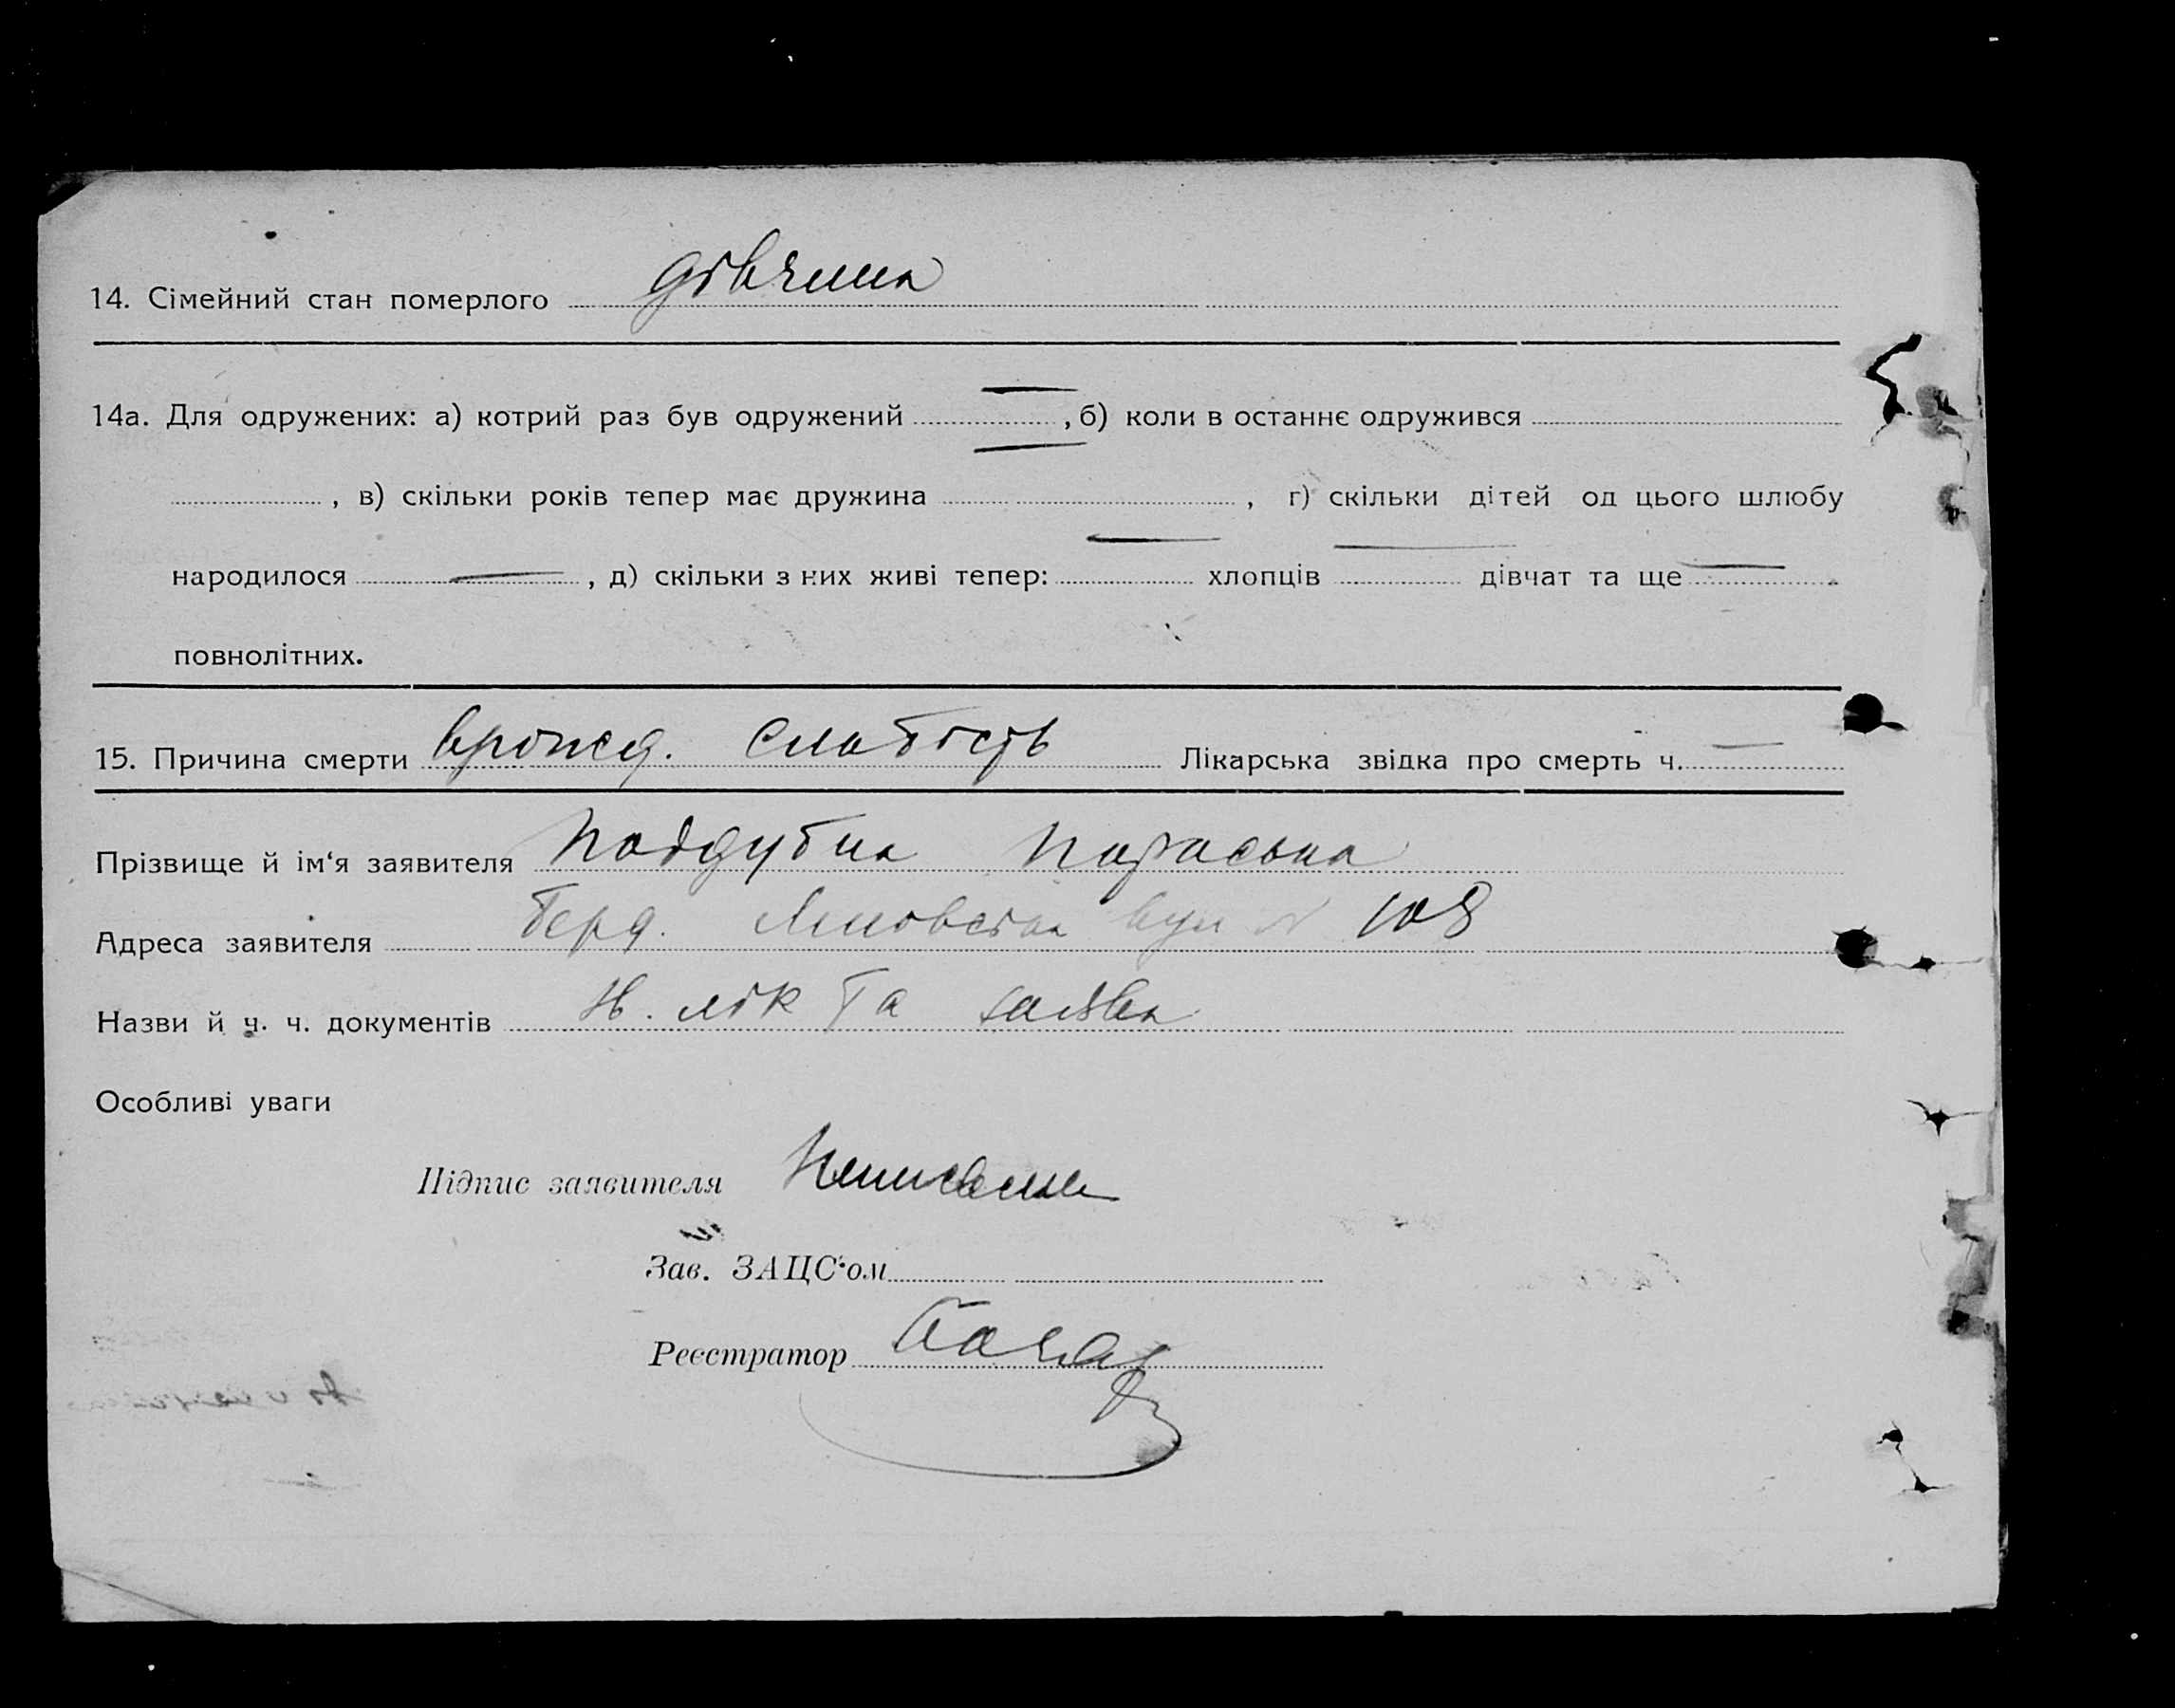 14. Сімейний стан померлого дівчина
14а. Для одружених: а) котрий раз був одружений — , б) коли в останнє одружився
, в) скільки років тепер має дружина — , г) скільки дітей од цього шлюбу
народилося — , д) скільки з них живі тепер: — хлопців — дівчат та ще —
повнолітних.
15. Причина смерти врожд. слабість Лікарська звідка про смерть ч. —
Прізвище й ім‘я заявителя Поддубна Параська
Адреса заявителя Берд. вул N 108
Назви й ч. ч. документів та заява
Особливі уваги
Підпис заявителя
Зав. ЗАЦС‘ом
Реєстратор